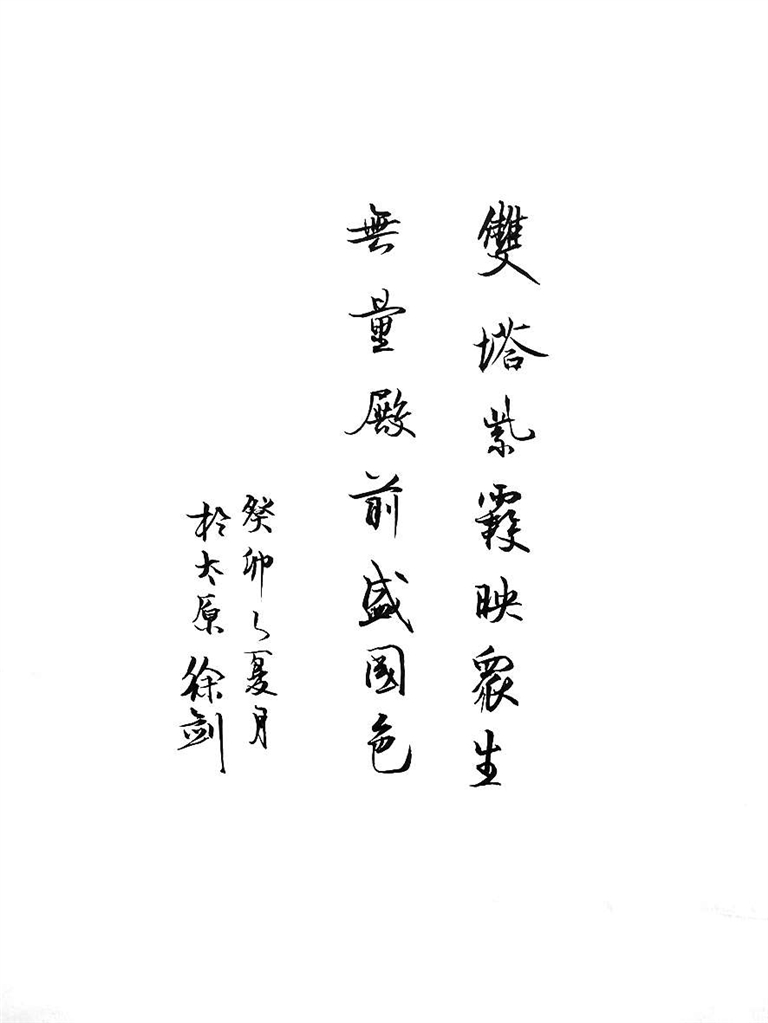 雙塔紫霞映眾生
無量殿前盛國色
癸卯之夏月
於太原徐劍